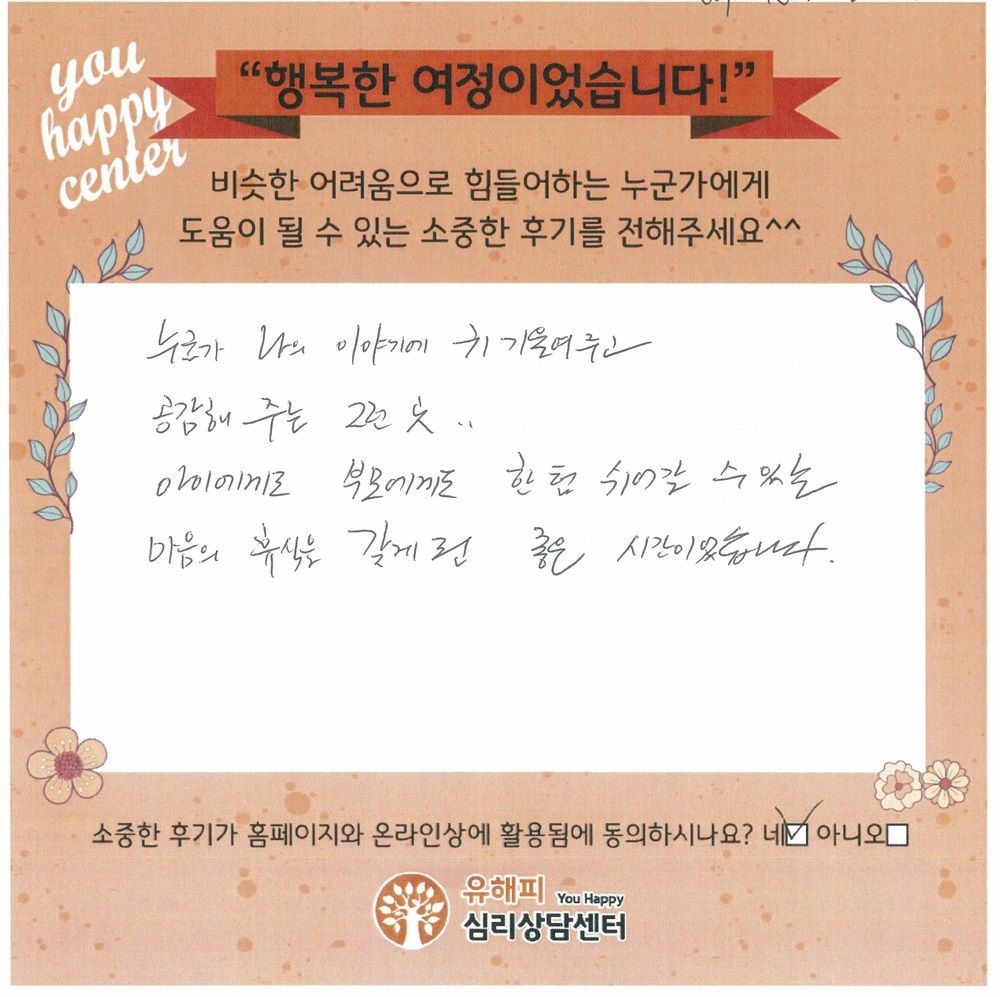 you
happy
center
“행복한 여정이었습니다!”
비슷한 어려움으로 힘들어하는 누군가에게
도움이 될 수 있는 소중한 후기를 전해주세요^^
누군가 나의 이야기에 귀 기울여주고
공감해 주는 그런 곳..
아이에게도 부모에게도 한 텀 쉬어갈 수 있는
마음의 휴식을 갖게 된 좋은 시간이었습니다.
소중한 후기가 홈페이지와 온라인상에 활용됨에 동의하시나요? 네 아니오
유해피 You Happy
심리상담센터